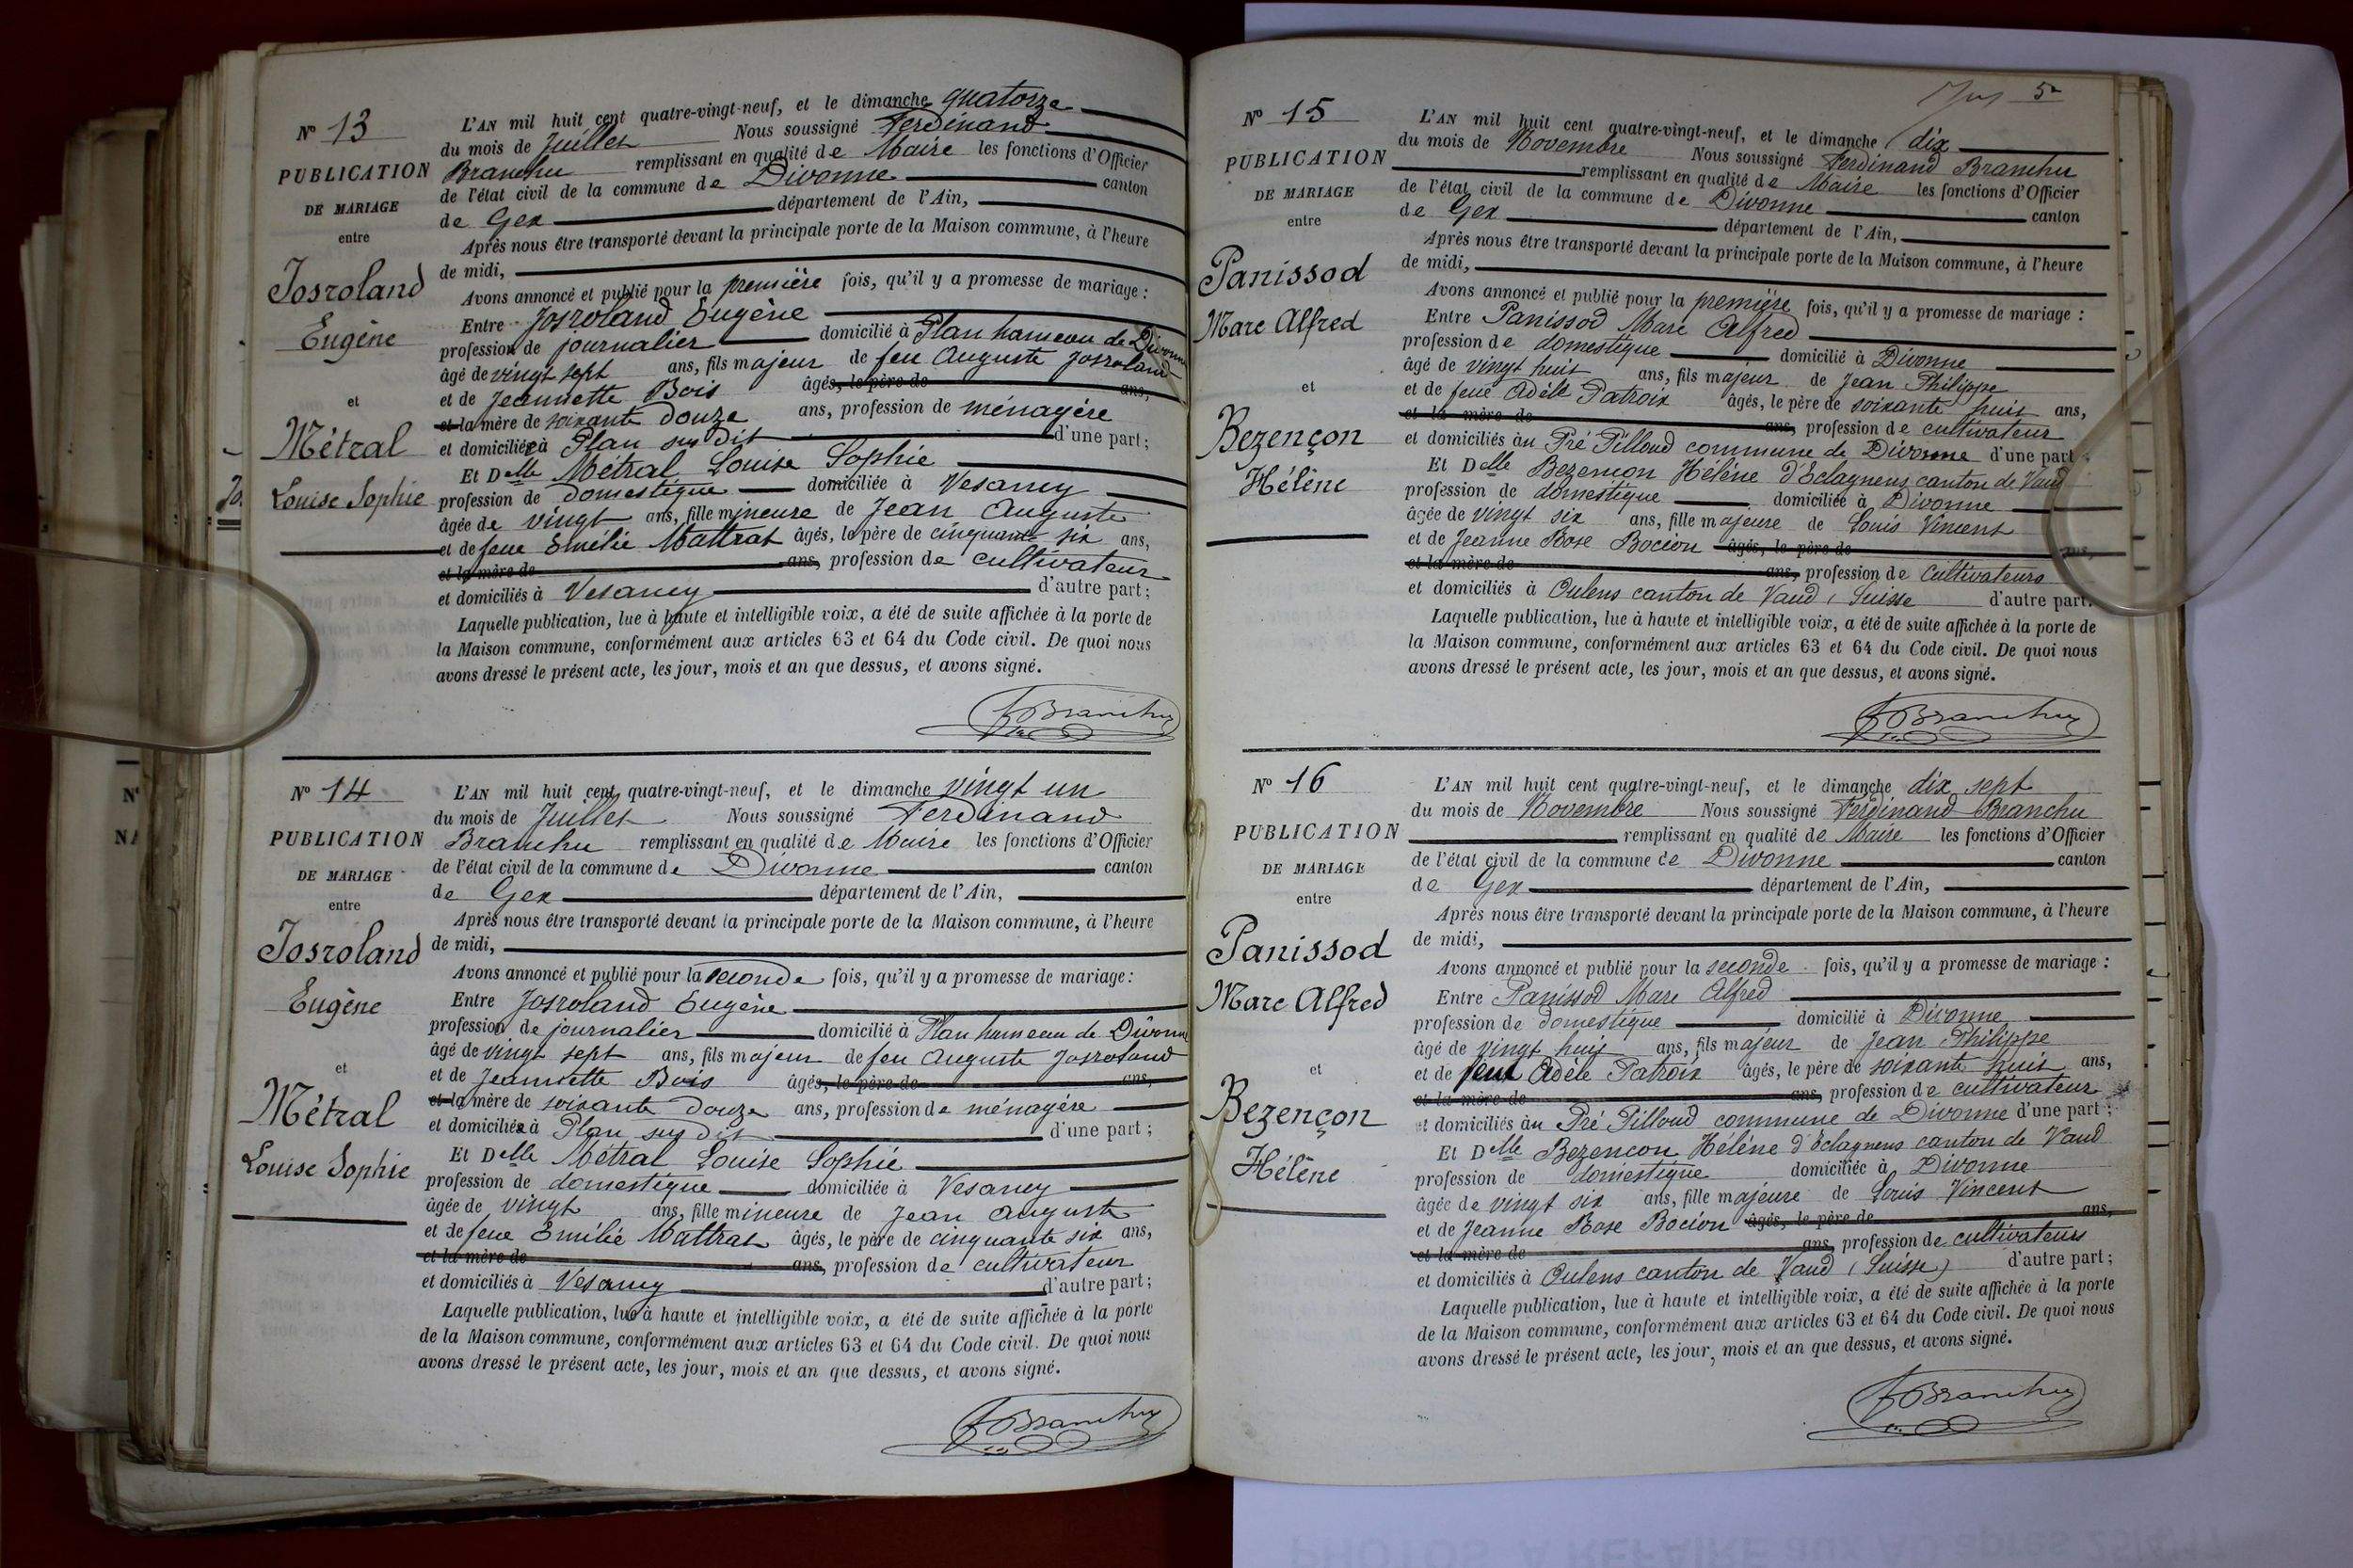 Nº 13
PUBLICATION
DE MARIAGE
entre
Josroland
Eugène
et
Métral
Louise Sophie
L'AN mil huit cent quatre-vingt-neuf, et le dimanche quatorze
du mois de Juillet Nous soussigné Ferdinand
Branchu remplissant en qualité de Maire les fonctions d'Officier
de l'état civil de la commune de Divonne canton
de Gex département de l'Ain,
Après nous être transporté devant la principale porte de la Maison commune, à l'heure
de midi,
Avons annoncé et publié pour la première fois, qu'il y a promesse de mariage :
Entre Josroland Eugène
profession de journalier domicilié à Plan hameau de Divonne
âgé de vingt sept ans, fils majeur de feu Auguste Josroland
et de Jeannette Bois âgés, le père de ans,
et la mère de soixante douze ans, profession de ménagère
et domiciliée à Plan sus dit d'une part ;
Et Delle Métral Louise Sophie
profession de domestique domiciliée à Vesancy
âgée de vingt ans, fille mineure de Jean Auguste
et de feue Emélie Mattrat âgés, le père de cinquante six ans,
et la mère de ans, profession de cultivateur
et domiciliés à Vesancy d'autre part ;
Laquelle publication, lue à haute et intelligible voix, a été de suite affichée à la porte de
la Maison commune, conformément aux articles 63 et 64 du Code civil. De quoi nous
avons dressé le présent acte, les jour, mois et an que dessus, et avons signé.
FBranchu
Nº 14
PUBLICATION
DE MARIAGE
entre
Josroland
Eugène
et
Métral
Louise Sophie
L'AN mil huit cent quatre-vingt-neuf, et le dimanche vingt un
du mois de Juillet Nous soussigné Ferdinand
Branchu remplissant en qualité de Maire les fonctions d'Officier
de l'état civil de la commune de Divonne canton
de Gex département de l'Ain,
Après nous être transporté devant la principale porte de la Maison commune, à l'heure
de midi,
Avons annoncé et publié pour la seconde fois, qu'il y a promesse de mariage :
Entre Josroland Eugène
profession de journalier domicilié à Plan hameau de Divonne
âgé de vingt sept ans, fils majeur de feu Auguste Josroland
et de Jeannette Bois âgés, le père de ans,
et la mère de soixante douze ans, profession de ménagère
et domiciliée à Plan sus dit d'une part ;
Et Delle Métral Louise Sophie
profession de domestique domiciliée à Vesancy
âgée de vingt ans, fille mineure de Jean Auguste
et de feue Emélie Mattrat âgés, le père de cinquante six ans,
et la mère de ans, profession de cultivateur
et domiciliés à Vesancy d'autre part ;
Laquelle publication, lue à haute et intelligible voix, a été de suite affichée à la porte
de la Maison commune, conformément aux articles 63 et 64 du Code civil. De quoi nous
avons dressé le présent acte, les jour, mois et an que dessus, et avons signé.
FBranchu
5
Nº 15
PUBLICATION
DE MARIAGE
entre
Panissod
Marc Alfred
et
Bezençon
Hélène
L'AN mil huit cent quatre-vingt-neuf, et le dimanche dix
du mois de Novembre Nous soussigné Ferdinand Branchu
remplissant en qualité de Maire les fonctions d'Officier
de l'état civil de la commune de Divonne canton
de Gex département de l'Ain,
Après nous être transporté devant la principale porte de la Maison commune, à l'heure
de midi,
Avons annoncé et publié pour la première fois, qu'il y a promesse de mariage :
Entre Panissod Marc Alfred
profession de domestique domicilié à Divonne
âgé de vingt huit ans, fils majeur de Jean Philippe
et de feue Adèle Patroix âgés, le père de soixante huit ans,
et la mère de ans, profession de cultivateur
et domiciliés au Pré Pilloud commune de Divonne d'une part ;
Et Delle Bezencon Hélène d'Eclagnens canton de Vaud
profession de domestique domiciliée à Divonne
âgée de vingt six ans, fille majeure de Louis Vincent
et de Jeanne Rose Bocion âgés, le père de ans,
et la mère de ans, profession de cultivateurs
et domiciliés à Oulens canton de Vaud, Suisse d'autre part.
Laquelle publication, lue à haute et intelligible voix, a été de suite affichée à la porte de
la Maison commune, conformément aux articles 63 et 64 du Code civil. De quoi nous
avons dressé le présent acte, les jour, mois et an que dessus, et avons signé.
FBranchu
Nº 16
PUBLICATION
DE MARIAGE
entre
Panissod
Marc Alfred
et
Bezençon
Hélène
L'AN mil huit cent quatre-vingt-neuf, et le dimanche dix sept
du mois de Novembre Nous soussigné Ferdinand Branchu
remplissant en qualité de Maire les fonctions d'Officier
de l'état civil de la commune de Divonne canton
de Gex département de l'Ain,
Après nous être transporté devant la principale porte de la Maison commune, à l'heure
de midi,
Avons annoncé et publié pour la seconde fois, qu'il y a promesse de mariage :
Entre Panissod Marc Alfred
profession de domestique domicilié à Divonne
âgé de vingt huit ans, fils majeur de Jean Philippe
et de feue Adèle Patroix âgés, le père de soixante huit ans,
et la mère de ans, profession de cultivateur
et domiciliés au Pré Pilloud commune de Divonne d'une part ;
Et Delle Bezencon Hélène d'Eclagnens canton de Vaud
profession de domestique domiciliée à Divonne
âgée de vingt six ans, fille majeure de Louis Vincent
et de Jeanne Rose Bocion âgés, le père de ans,
et la mère de ans, profession de cultivateurs
et domiciliés à Oulens canton de Vaud (Suisse) d'autre part ;
Laquelle publication, lue à haute et intelligible voix, a été de suite affichée à la porte
de la Maison commune, conformément aux articles 63 et 64 du Code civil. De quoi nous
avons dressé le présent acte, les jour, mois et an que dessus, et avons signé.
FBranchu